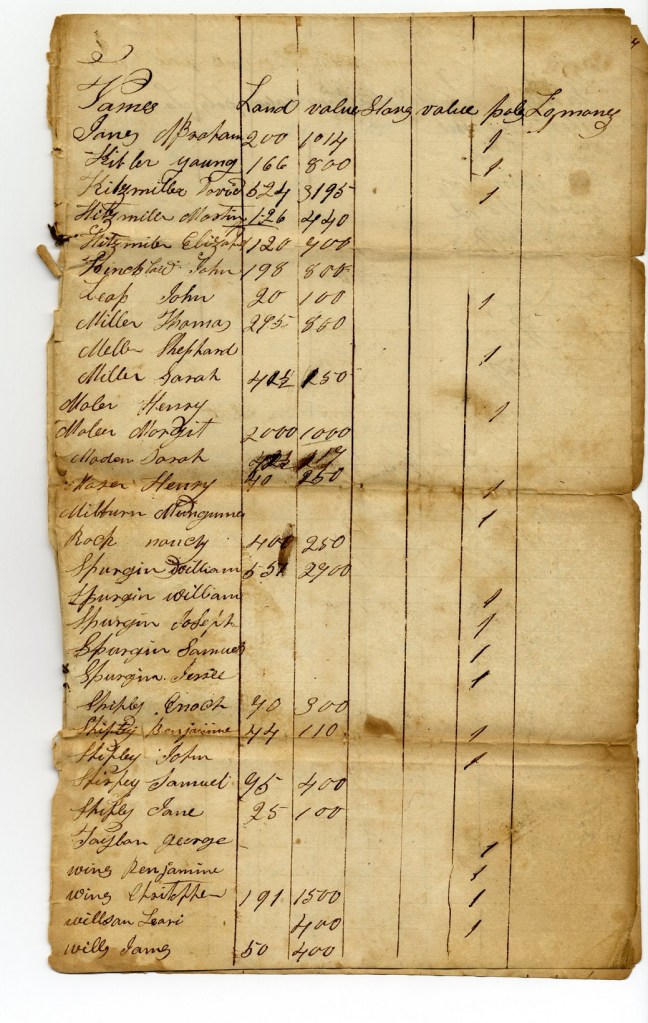 Names Land value Slaves value pole
Janes Abraham 200 1014 1
Kitler young 166 800 1
Kitzmiller David 524 3195 1
Hitzmiler Martin 126 440
Hitzmiler Elizabe 120 400
John 198 800
Leap John 20 100 1
Miller Thomas 295 860
Meller Shephard 1
Miller Sarah 250
Moler Henry 1
Moleer Margit 2000 1000
Moden Sarah
Maser Henry 40 250 1
Milburn 1
Rock nancy 400 250
Spurgin William 551 2900
Spurgin william 1
Spurgin Joseph 1
Spurgin Samuel 1
Spurgin Jesse 1
Shiply Enoch 90 300
Shiply Benjamine 44 110 1
Shipley John 1
Shipley Samuel 95 400
Shiply Jane 25 100
Taylor george 1
wing Benjamine 1
wing Christopher 191 1500 1
willson Levi 400 1
wills James 50 400